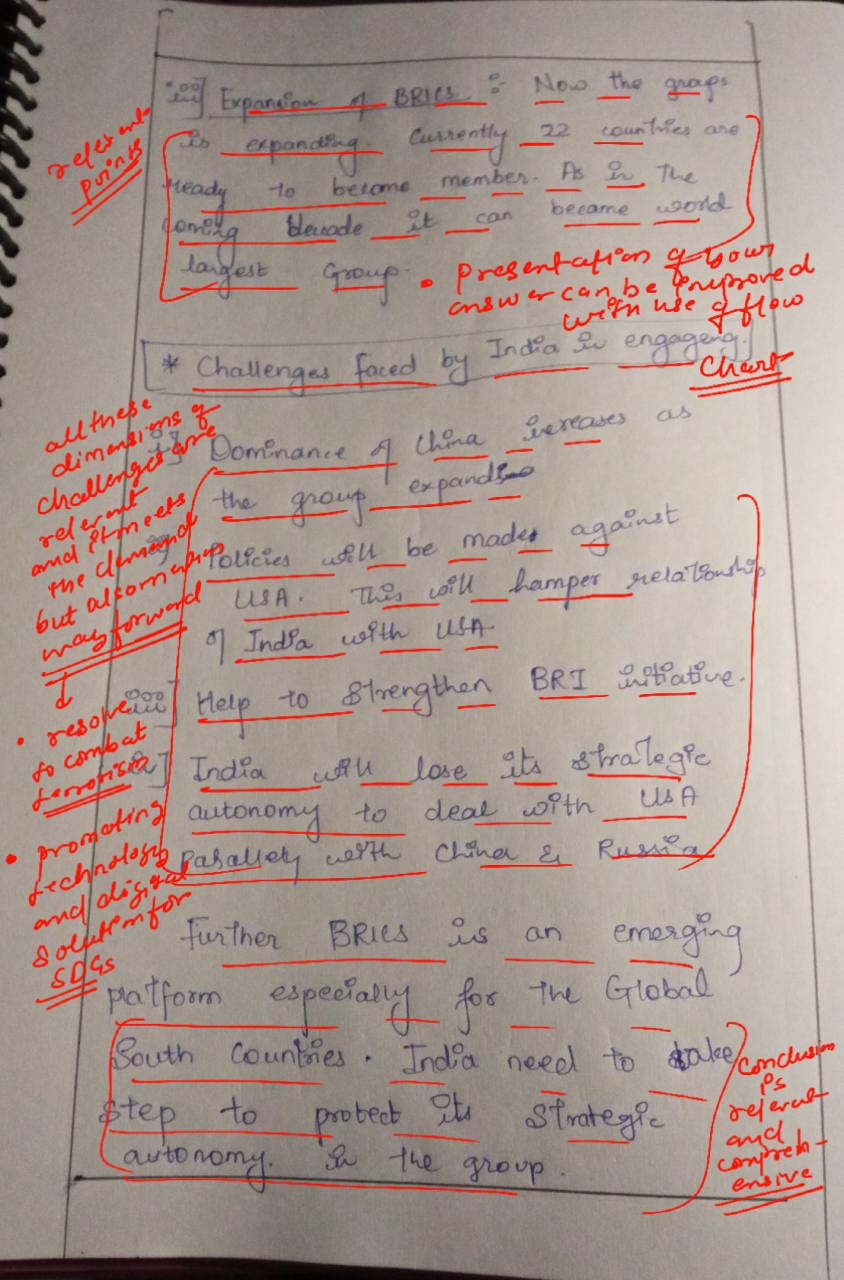 iii] Expansion of BRICS :- Now the groups
is expanding. Currently 22 countries are
ready to become member. As in the
coming decade it can became world
largest Group.
relevant
points
• Presentation of your
answer can be improved
with use of flow
chart
* Challenges faced by India in engageng.
all these
dimensions of
challenges are
relevant
and it meets
the demand
but also
way forward
• resolve
to combat
terrorism
• promoting
technology
and digital
solution for
SDGs
i] Dominance of China increases as
the group expands
Policies will be made against
USA. This will hamper relationship
of India with USA
iii] Help to strengthen BRI initiative.
India will lose its strategic
autonomy to deal with USA
Parallely with China & Russia
Further BRICS is an emerging
platform especially for the Global
South Countries. India need to take
step to protect its strategic
autonomy. in the group.
Conclusion
is
relevant
and
compreh-
ensive